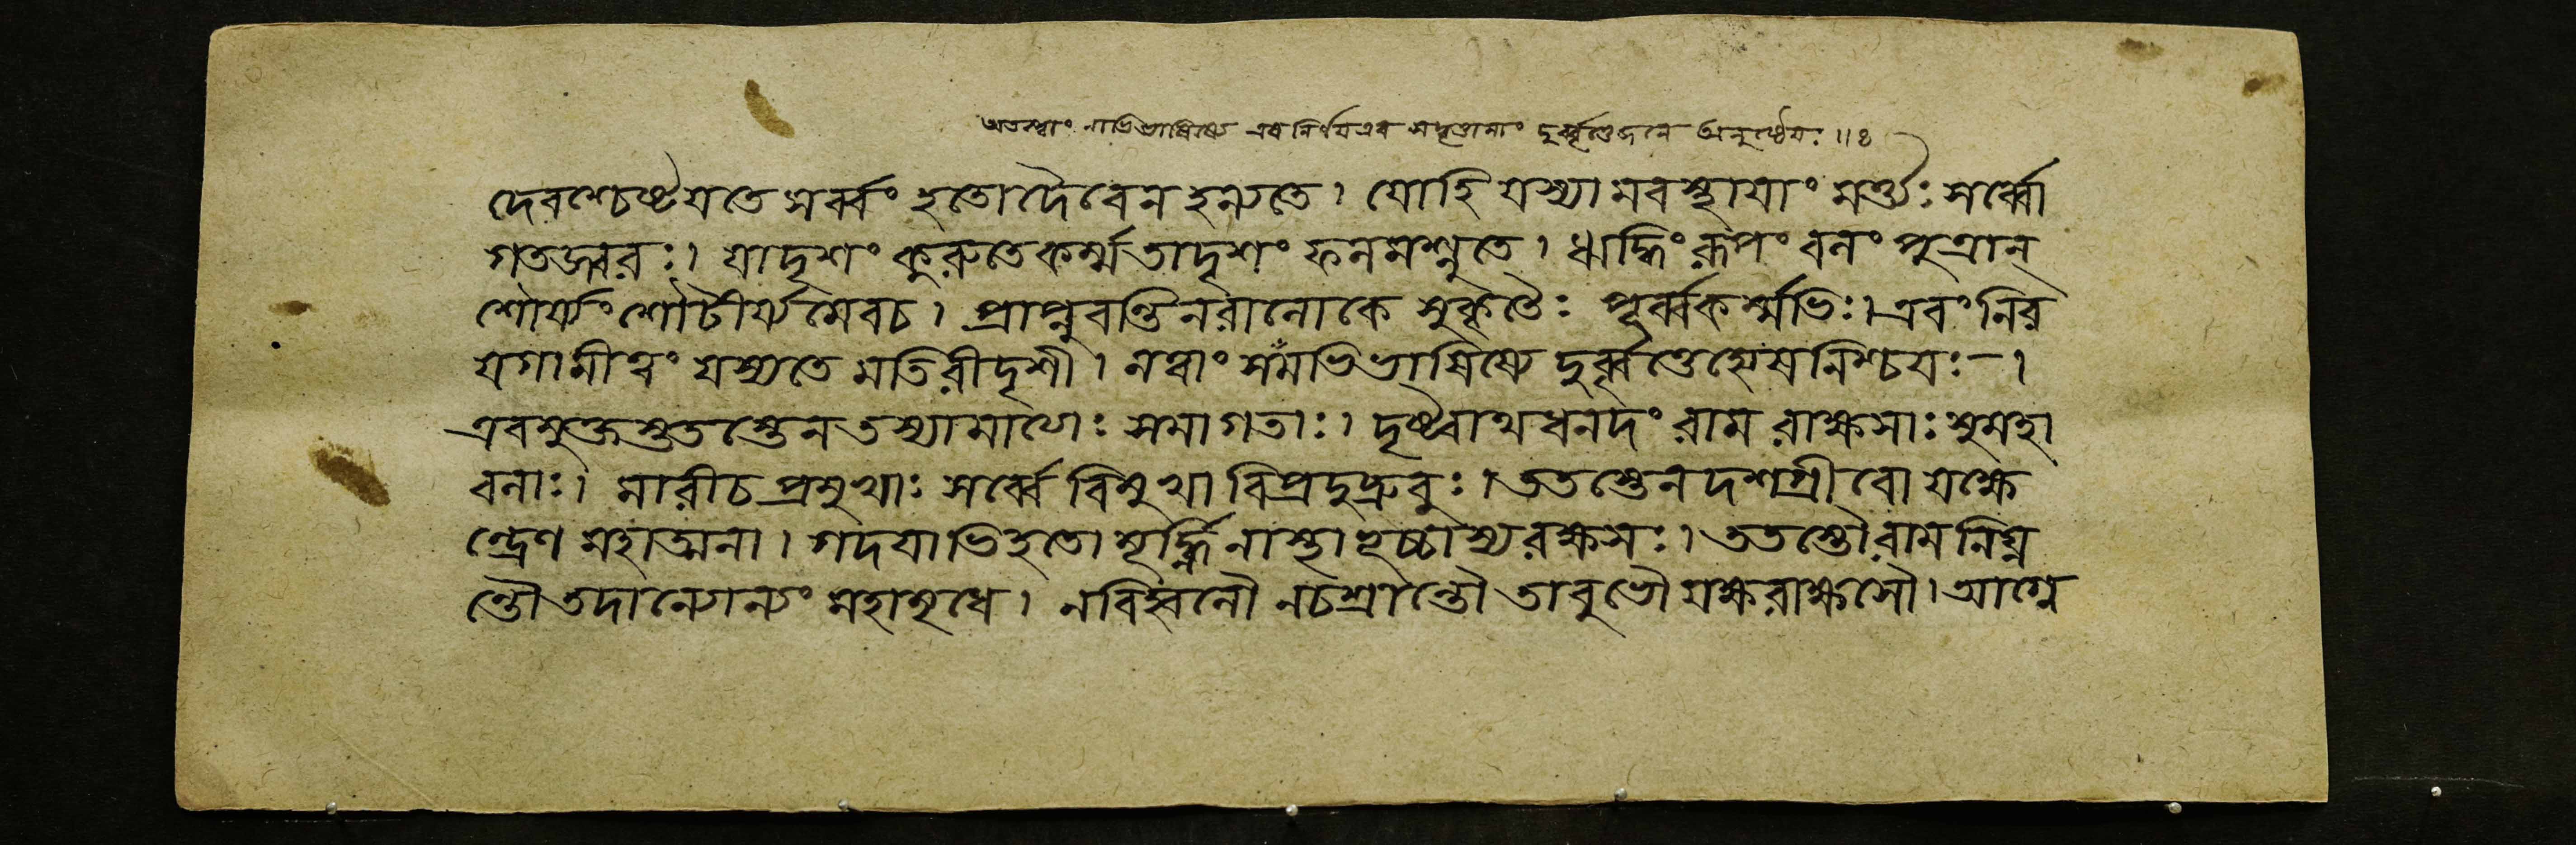 অতস্ত্বাং নাভিভাষিষ্যে এষ নির্ণয় এব সদ্বৃত্তানাং দুর্বৃত্তে জনে অনুষ্ঠেয়ঃ ॥ ৪
দেবশ্চেষ্টয়তে সর্ব্বং হতো দৈবেন হন্যতে। যো হি যস্যামবস্থায়াং মর্ত্যঃ সর্ব্বো
গতজ্বরঃ। যাদৃশং কুরুতে কর্ম্ম তাদৃশং ফলমশ্নুতে। ঋদ্ধিং রূপং বলং পুত্রান্
শৌর্য্যং শৌটীর্য্যমেবচ। প্রাপ্নুবন্তি নরা লোকে সুকৃতৈঃ পূর্ব্বকর্ম্মভিঃ। এবং নির
য়গামী ত্বং যস্য তে মতিরীদৃশী। ন ত্বাং সমভিভাষিষ্যে দুর্ব্বৃত্তে হ্যেষ নিশ্চয়ঃ –।
এবমুক্তস্তুতস্তেন তস্যামাত্যাঃ সমাগতাঃ। দৃষ্ট্বাথ ধনদং রাম রাক্ষসাঃ সুমহা
বলাঃ। মারীচপ্রমুখাঃ সর্ব্বে বিমুখা বিপ্রদুদ্রুবুঃ। ততস্তেন দশগ্রীবো যক্ষে
ন্দ্রেণ মহাত্মনা। গদয়াভিহতো মূর্দ্ধ্নি নাস্থাৎ চ্চাস্য রক্ষসঃ। ততস্তৌ রাম নিঘ্ন
ন্তৌ তদান্যোন্যং মহামৃধে। ন বিহ্বলৌ ন চ শ্রান্তৌ তাবুভৌ যক্ষরাক্ষসৌ। আগ্নে